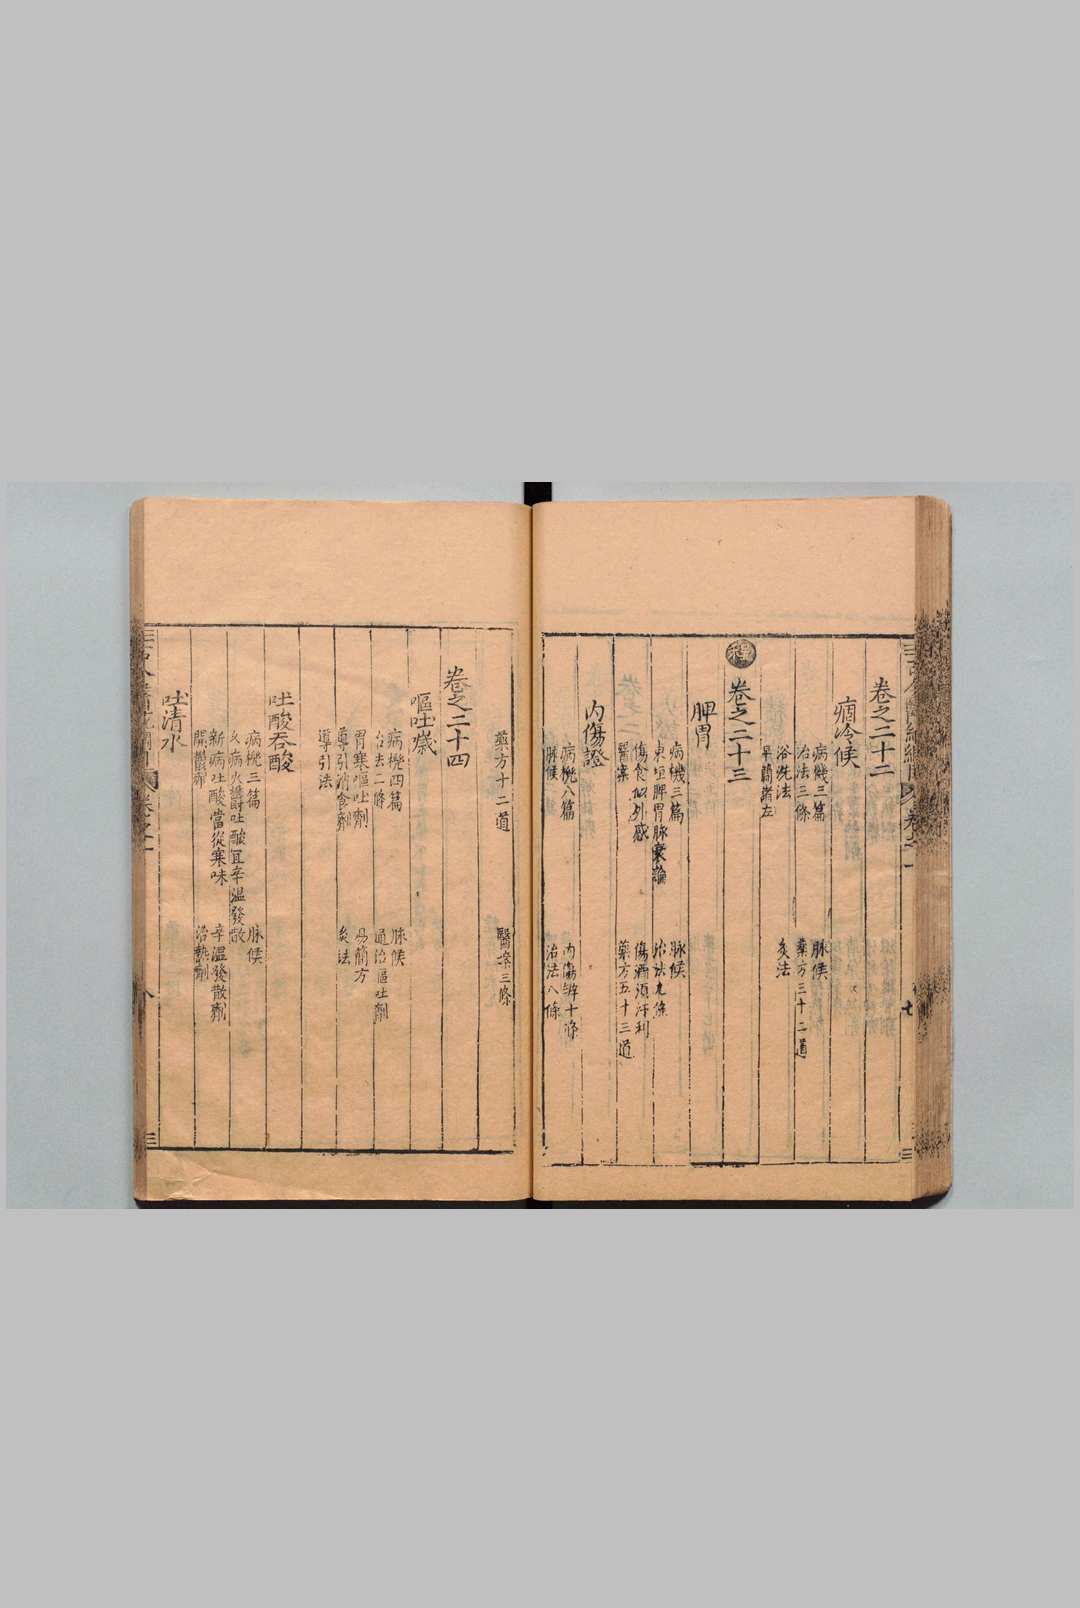 卷之二十二
痼冷候
病機三篇
脉候
治法三條
藥方三十二道
浴洗法
灸法
卷之二十三
脾胃
病機三篇
脉候
東垣脾胃脉衰論
治法九條
傷食似外感
傷酒須汗利
醫案
藥方五十三道
内傷證
病機八篇
内傷辨十條
脉候
治法八條
七
藥方十二道
醫案三條
卷之二十四
嘔吐噦
病機四篇
脉候
治法二條
通治嘔吐劑
胃寒嘔吐劑
易簡方
導引消食劑
灸法
導引法
吐酸吞酸
病機三篇
脉候
久病火鬱吐酸宜辛溫發散
新病吐酸當從寒味
辛溫發散劑
開鬱劑
治熱劑
吐清水
八